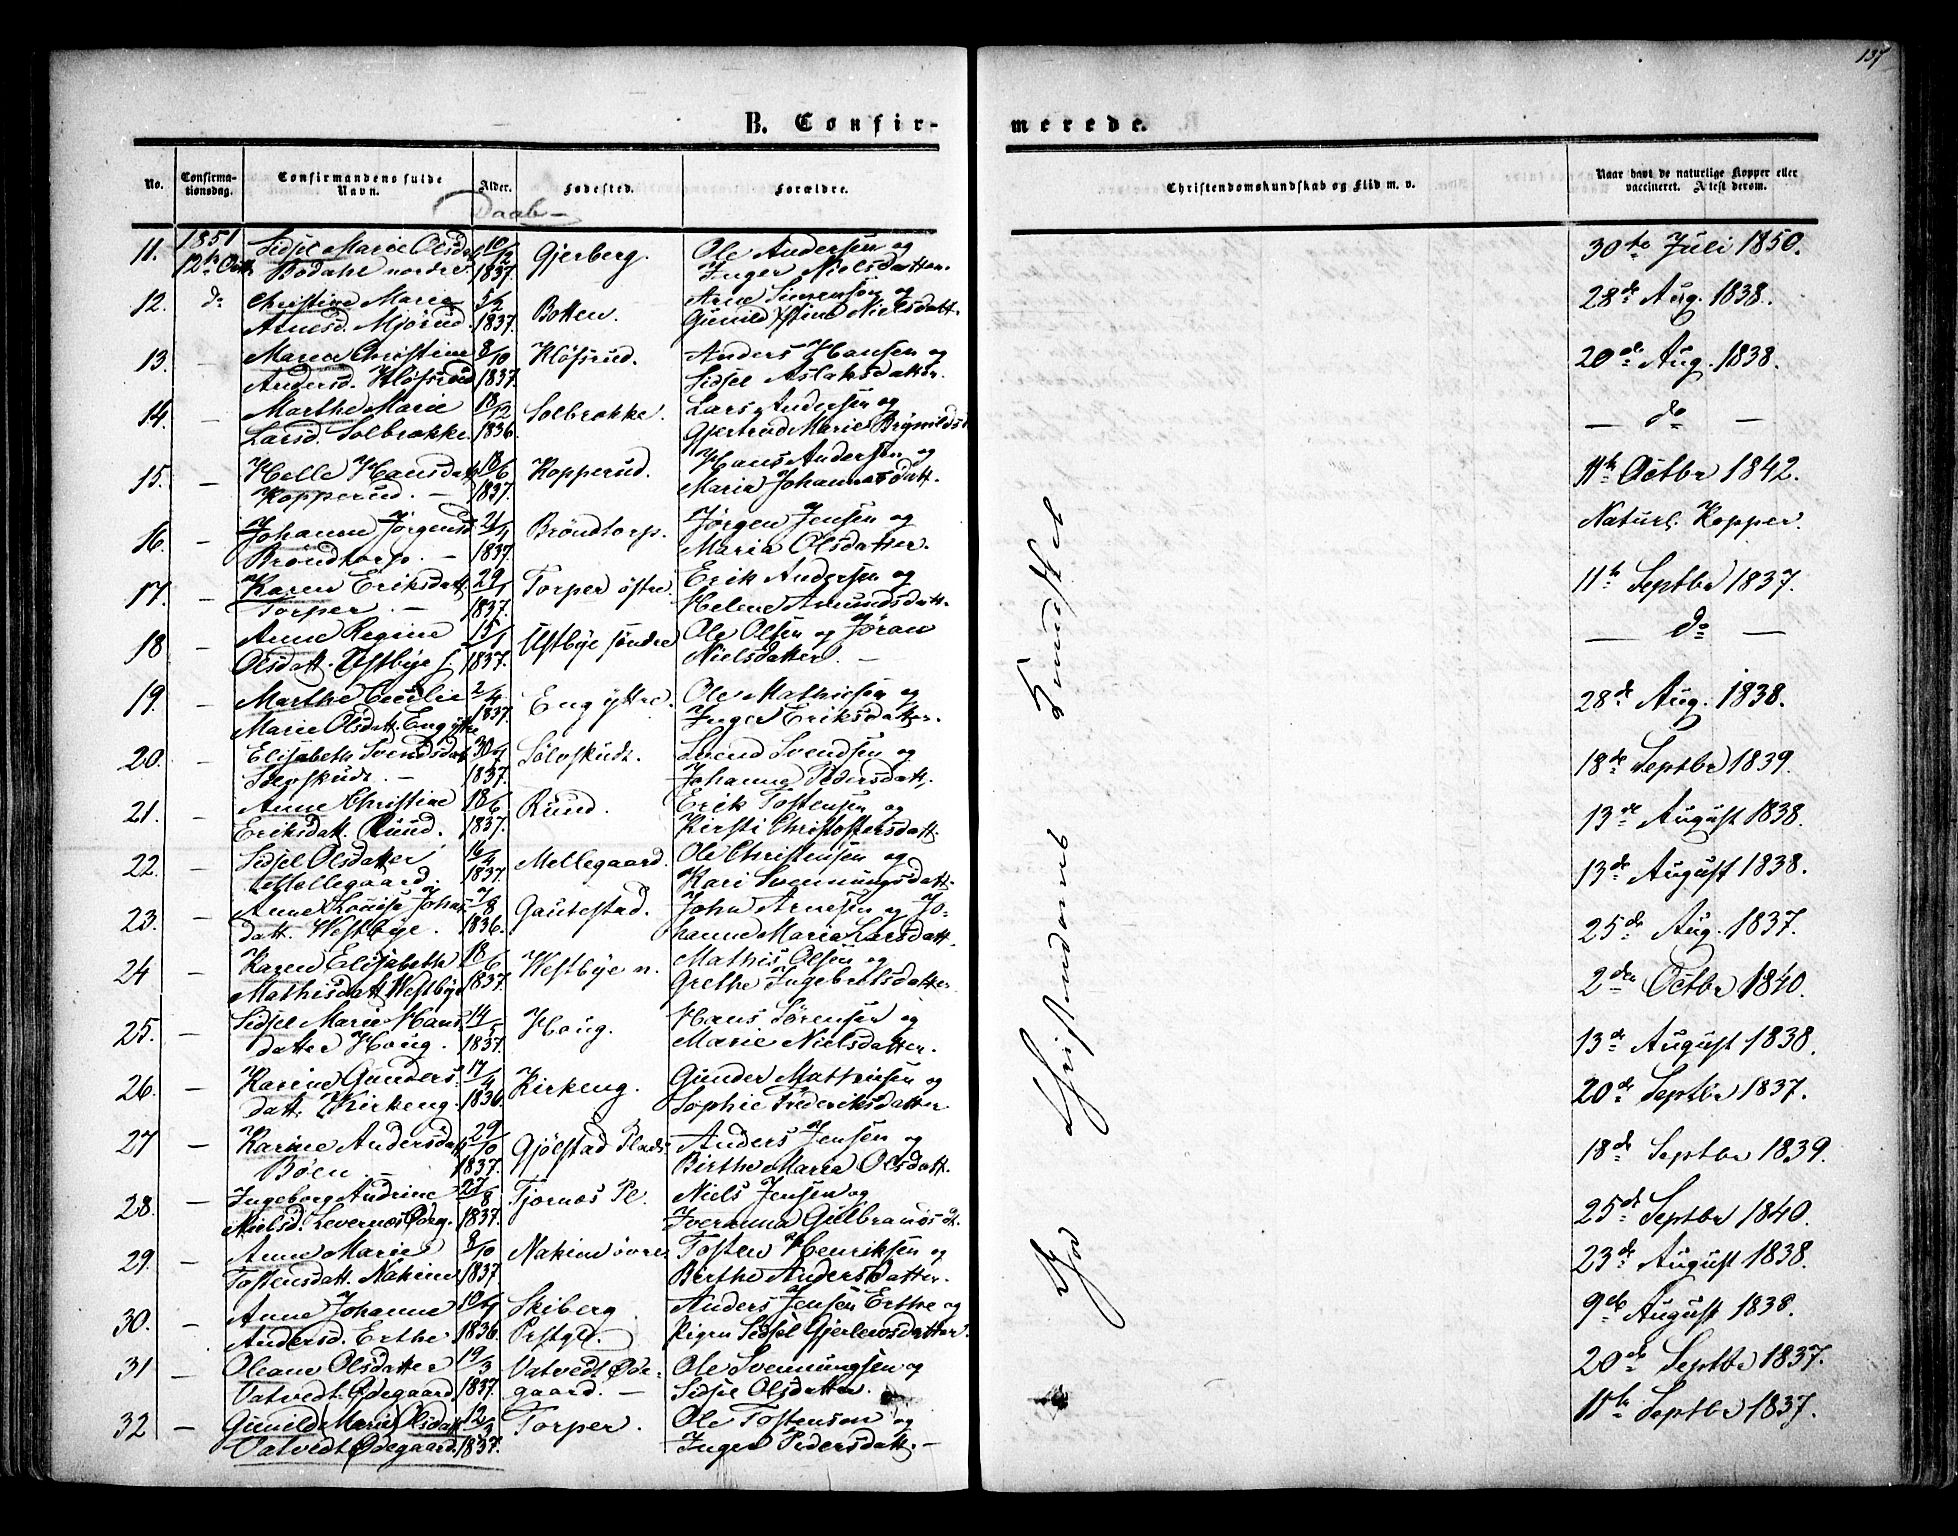 137
B. Confir-
merede.
No.
Confirma-
tionsdag.
Confirmandens fulde
Navn.
Alder.
Fødested.
Forældre.
Christendomskundskab og Flid m. v.
Naar havt de naturlige Kopper eller
vaccineret. Attest derom.
Daab
1851
11. 12te Octbr Sidsel Marie Olsdatt 10/2 Gjerberg. Ole Andersen og 30te Juli 1850.
Bødahl nordre 1837. Inger Nielsdatter.
12. do Christine Marie 5/2 Botten. Arne Simensen og 28de Aug. 1838.
Arnesd. Mjørud. 1837. Gunild Xstine Nielsdatt.
13. — Maren Christine 8/10 Kløfsrud. Anders Hansen og 20de Aug. 1838.
Andersd. Kløfsrud 1837. Sidsel Aslaksdatter.
14. — Marthe Marie 18/12 Solbrække. Lars Andersen og — do —
Larsd. Solbrække. 1836. Gjertrud Marie Brynildsd.
15. — Helle Hansdatt 18/6 Kopperud. Hans Andersen og 11te Octbr 1842.
Kopperud. — 1837. Maria Johannesdatt.
16. — Johanne Jørgensd 21/4 Brøndtorp. Jørgen Jensen og Naturl. Kopper.
Brøndtorp. — 1837. Maria Olsdatter.
17. — Karen Eriksdatt 29/1 Torper østre Erik Andersen og 11te Septbr 1837.
Torper. — 1837. Helene Amundsdatt.
18 — Anne Regine 15/1 Ustbye søndre Ole Olsen og Jøran — do —
Olsdatt. Ustbye s. 1837. Nielsdatter. —
19. — Marthe Cecilie 2/4 Eng yttre. Ole Mathiesen og 28de Aug. 1838.
Marie Olsdatt. Eng yttre 1837. Inger Eriksdatter.
20. — Elisabeth Svendsdatt 30/1 Sølvskudt. Svend Svendsen og 18de Septbr 1839.
Sølvskudt. — 1837. Johanne Pedersdatt.
21. — Anne Christine 18/6 Ruud. Erik Tostensen og 13de August 1838.
Eriksdatt. Ruud. 1837. Kirsti Christoffersdatt.
22. — Sidsel Olsdatter 16/4 Mellegaard. Ole Christensen og 13de August 1838.
Mellegaard. 1837. Kari Svenningsdatt.
23. — Anne Lovise Johns 7/8 Gautestad. John Arnesen og Jo- 25de Aug. 1837.
datt. Westbye. 1836. hanne Maria Larsdatt.
24 — Karen Elisabeth 18/6 Westbye n. Mathis Olsen og 2den Octbr 1840.
Mathisdatt Westbye 1837. Grethe Ingebretsdatter
25. — Sidsel Marie Hans 14/5 Houg. Hans Sørensen og 13de August 1838.
datter Houg. 1837. Marie Nielsdatter.
26. — Karine Gunders 17/4 Kirkeng. Gunder Mathiesen og 20de Septbr 1837.
datt. Kirkeng. 1836. Sophie Frederiksdatter
27 — Karine Andersdatt 29/10 Gjølstad Plads Anders Jensen og 18de Septbr 1839.
Bøen. — 1837. Birthe Maria Olsdatt.
28. — Ingeborg Andrine 27/8 Tjernæs Pl. Niels Jensen og 25de Septbr 1840.
Nielsd. Levernæs Ødeg. 1837. Iveranna Gulbrandsdt.
29. — Anne Marie 8/10 Nakim øvre Tosten Henriksen og 23de August 1838.
Tostensdatt. Nakim 1837 Birthe Andersdatter.
30. — Anne Johanne 10/7 Skiberg Anders Jensen Erthe og 9de August 1838.
Andersd. Erthe 1836. Prstgd. Pigen Sidsel Gjerlowsdatter.
31 — Oleane Olsdatter 19/3 Vatvedt Øde- Ole Svenningsen og 20de Septbr 1837.
Vatvedt. Ødegaard 1837. gaard. — Sidsel Olsdatter.
32 — Gunild (Marie) Olsdatt 12/3 Torper. Ole Tostensen og 11te Septbr 1837.
Vatvedt Ødegaard. 1837. Inger Pedersdatt. —
God Christendoms Kundskab